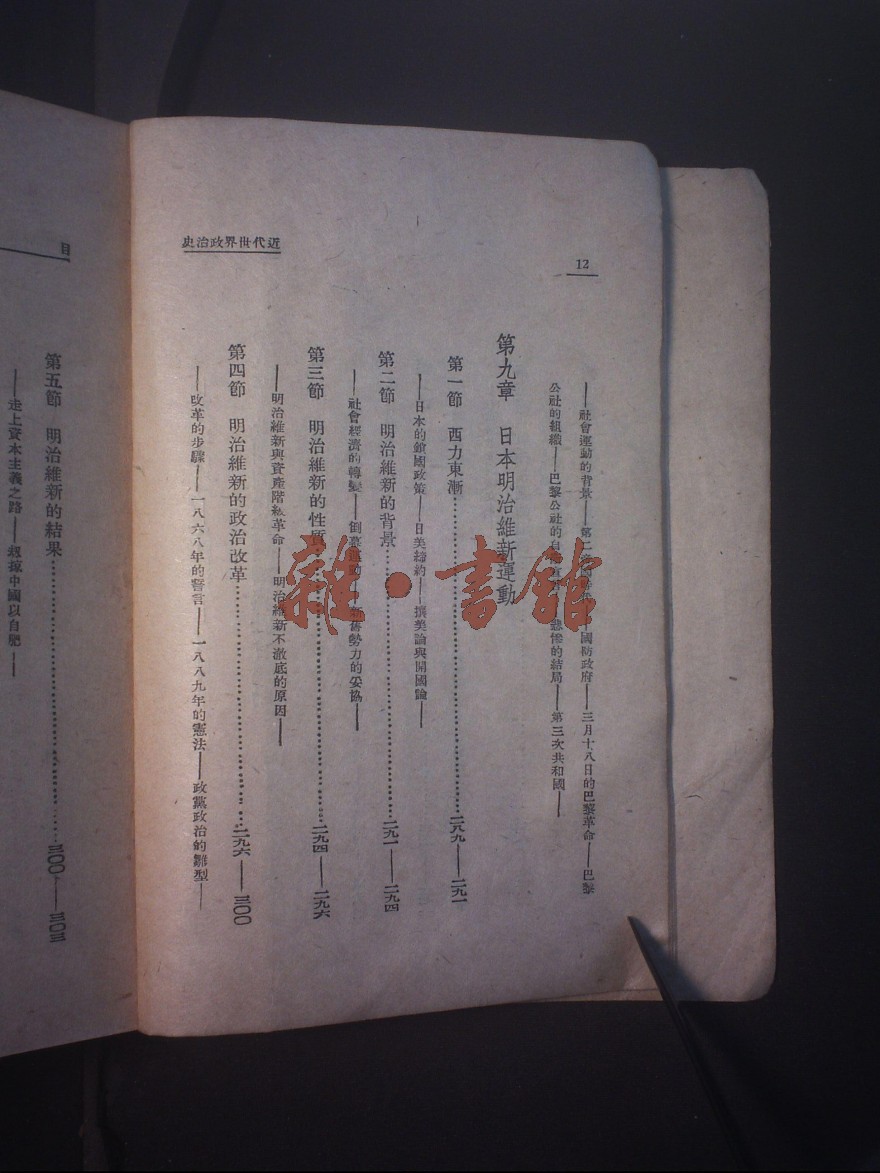 近代世界政治史
12
——社會運動的背景——第二國防政府——三月十八日的巴黎革命——巴黎
公社的組織——巴黎公社的悲慘的結局——第三次共和國——
第九章 日本明治維新運動
第一節 西力東漸……二八九——二九一
——日本的鎖國政策——日美締約——攘美論與開國論——
第二節 明治維新的背景……二九一——二九四
——社會經濟的轉變——倒幕運動——新舊勢力的妥協——
第三節 明治維新的性質……二九四——二九六
——明治維新與資產階級革命——明治維新不澈底的原因——
第四節 明治維新的政治改革……二九六——三〇〇
——改革的步驟——一八六八年的誓言——一八八九年的憲法——政黨政治的雛型——
目
第五節 明治維新的結果……三〇〇——三〇三
——走上資本主義之路——掠中國以自肥——
雜·書館